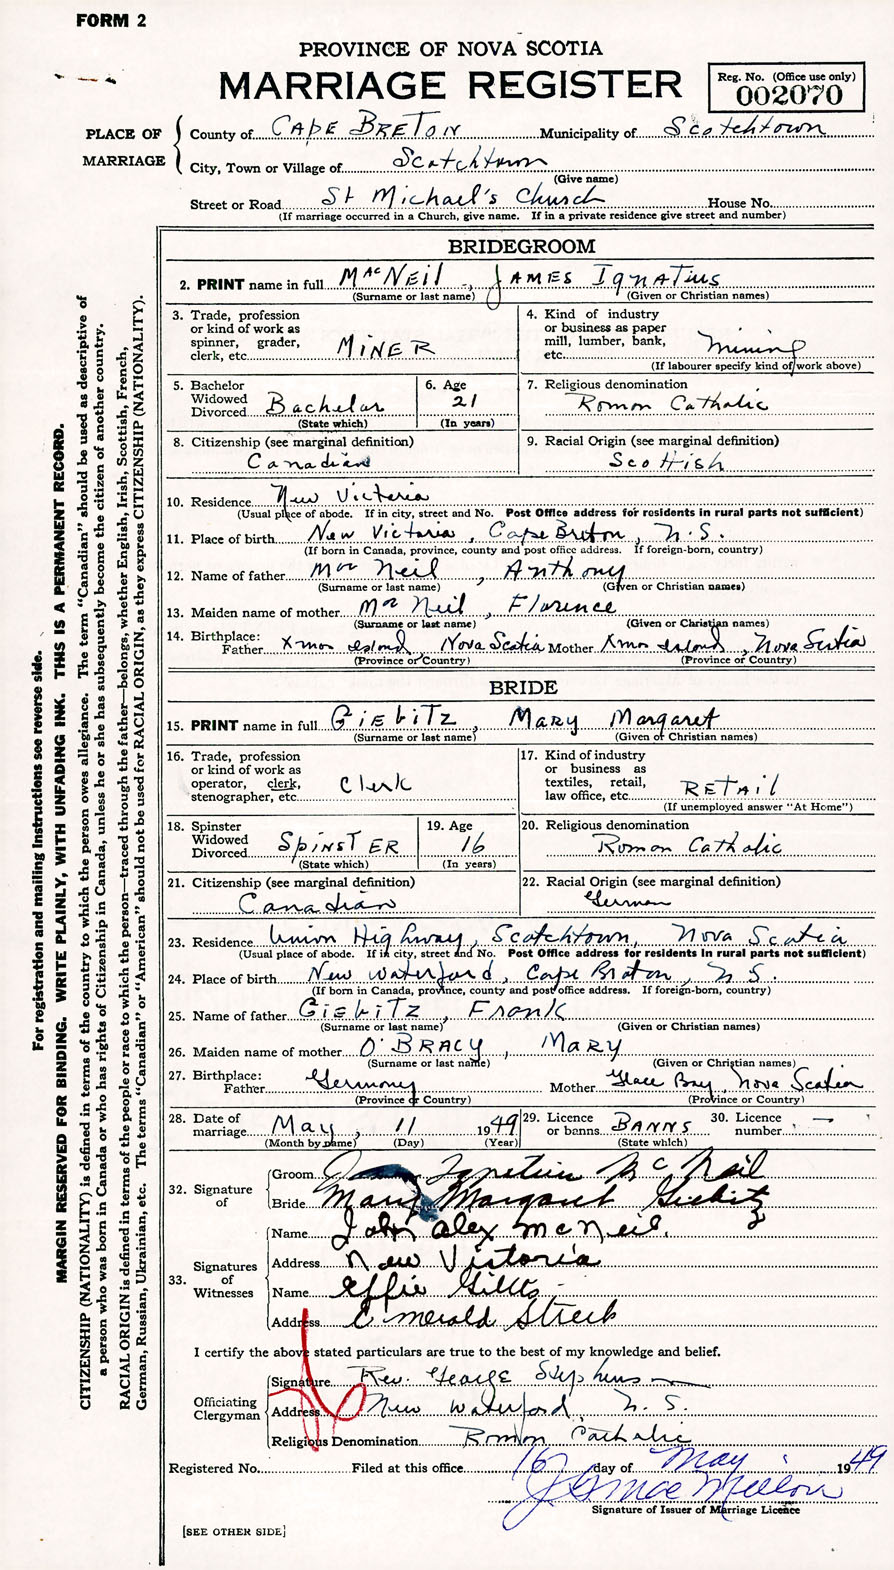 FORM 2
PROVINCE OF NOVA SCOTIA
MARRIAGE REGISTER
Reg. No. (Office use only)
002070
PLACE OF MARRIAGE
County of CAPE BRETON Municipality of Scotchtown
City, Town or Village of Scotchtown
(Give name)
Street or Road St Michael's Church House No.
(If marriage occurred in a Church, give name. If in a private residence give street and number)
BRIDEGROOM
2. PRINT name in full MacNeil, JAMES IgnATius
(Surname or last name) (Given or Christian names)
3. Trade, profession or kind of work as spinner, grader, clerk, etc. MINER
4. Kind of industry or business as paper mill, lumber, bank, etc. mining
(If labourer specify kind of work above)
5. Bachelor Widowed Divorced Bachelor
(State which)
6. Age 21
(In years)
7. Religious denomination
Roman Catholic
8. Citizenship (see marginal definition)
Canadian
9. Racial Origin (see marginal definition)
Scottish
10. Residence New Victoria
(Usual place of abode. If in city, street and No. Post Office address for residents in rural parts not sufficient)
11. Place of birth New Victoria, Cape Breton, N.S.
(If born in Canada, province, county and post office address. If foreign-born, country)
12. Name of father Mac Neil, Anthony
(Surname or last name) (Given or Christian names)
13. Maiden name of mother Mac Neil, Florence
(Surname or last name) (Given or Christian names)
14. Birthplace:
Father Xmas Island, Nova Scotia Mother Xmas Island, Nova Scotia
(Province or Country) (Province or Country)
BRIDE
15. PRINT name in full Giebitz, Mary Margaret
(Surname or last name) (Given or Christian names)
16. Trade, profession or kind of work as operator, clerk, stenographer, etc. Clerk
17. Kind of industry or business as textiles, retail, law office, etc. RETAil
(If unemployed answer "At Home")
18. Spinster Widowed Divorced SpiNSTER
(State which)
19. Age 16
(In years)
20. Religious denomination
Roman Catholic
21. Citizenship (see marginal definition)
Canadian
22. Racial Origin (see marginal definition)
German
23. Residence Union Highway, Scotchtown, Nova Scotia
(Usual place of abode. If in city, street and No. Post Office address for residents in rural parts not sufficient)
24. Place of birth New Waterford, Cape Breton, N.S.
(If born in Canada, province, county and post office address. If foreign-born, country)
25. Name of father Giebitz, Frank
(Surname or last name) (Given or Christian names)
26. Maiden name of mother O'BRACY, MARY
(Surname or last name) (Given or Christian names)
27. Birthplace:
Father Germany Mother Glace Bay, Nova Scotia
(Province or Country) (Province or Country)
28. Date of marriage May, 11 1949
(Month by name) (Day) (Year)
29. Licence or banns BANNS
(State which)
30. Licence number —
32. Signature of
Groom James Ignatius McNeil
Bride Mary Margaret Giebitz
33. Signatures of Witnesses
Name John Alex McNeil.
Address New Victoria
Name Effie
Address Emerald Street
I certify the above stated particulars are true to the best of my knowledge and belief.
Officiating Clergyman
Signature Rev. George Stephens
Address New Waterford, N.S.
Religious Denomination Roman Catholic
Registered No. Filed at this office 16 day of May 1949
Signature of Issuer of Marriage Licence
[SEE OTHER SIDE]
For registration and mailing instructions see reverse side.
MARGIN RESERVED FOR BINDING. WRITE PLAINLY, WITH UNFADING INK. THIS IS A PERMANENT RECORD.
CITIZENSHIP (NATIONALITY) is defined in terms of the country to which the person owes allegiance. The term "Canadian" should be used as descriptive of
a person who was born in Canada or who has rights of Citizenship in Canada, unless he or she has subsequently become the citizen of another country.
RACIAL ORIGIN is defined in terms of the people or race to which the person—traced through the father—belongs, whether English, Irish, Scottish, French,
German, Russian, Ukrainian, etc. The terms "Canadian" or "American" should not be used for RACIAL ORIGIN, as they express CITIZENSHIP (NATIONALITY).